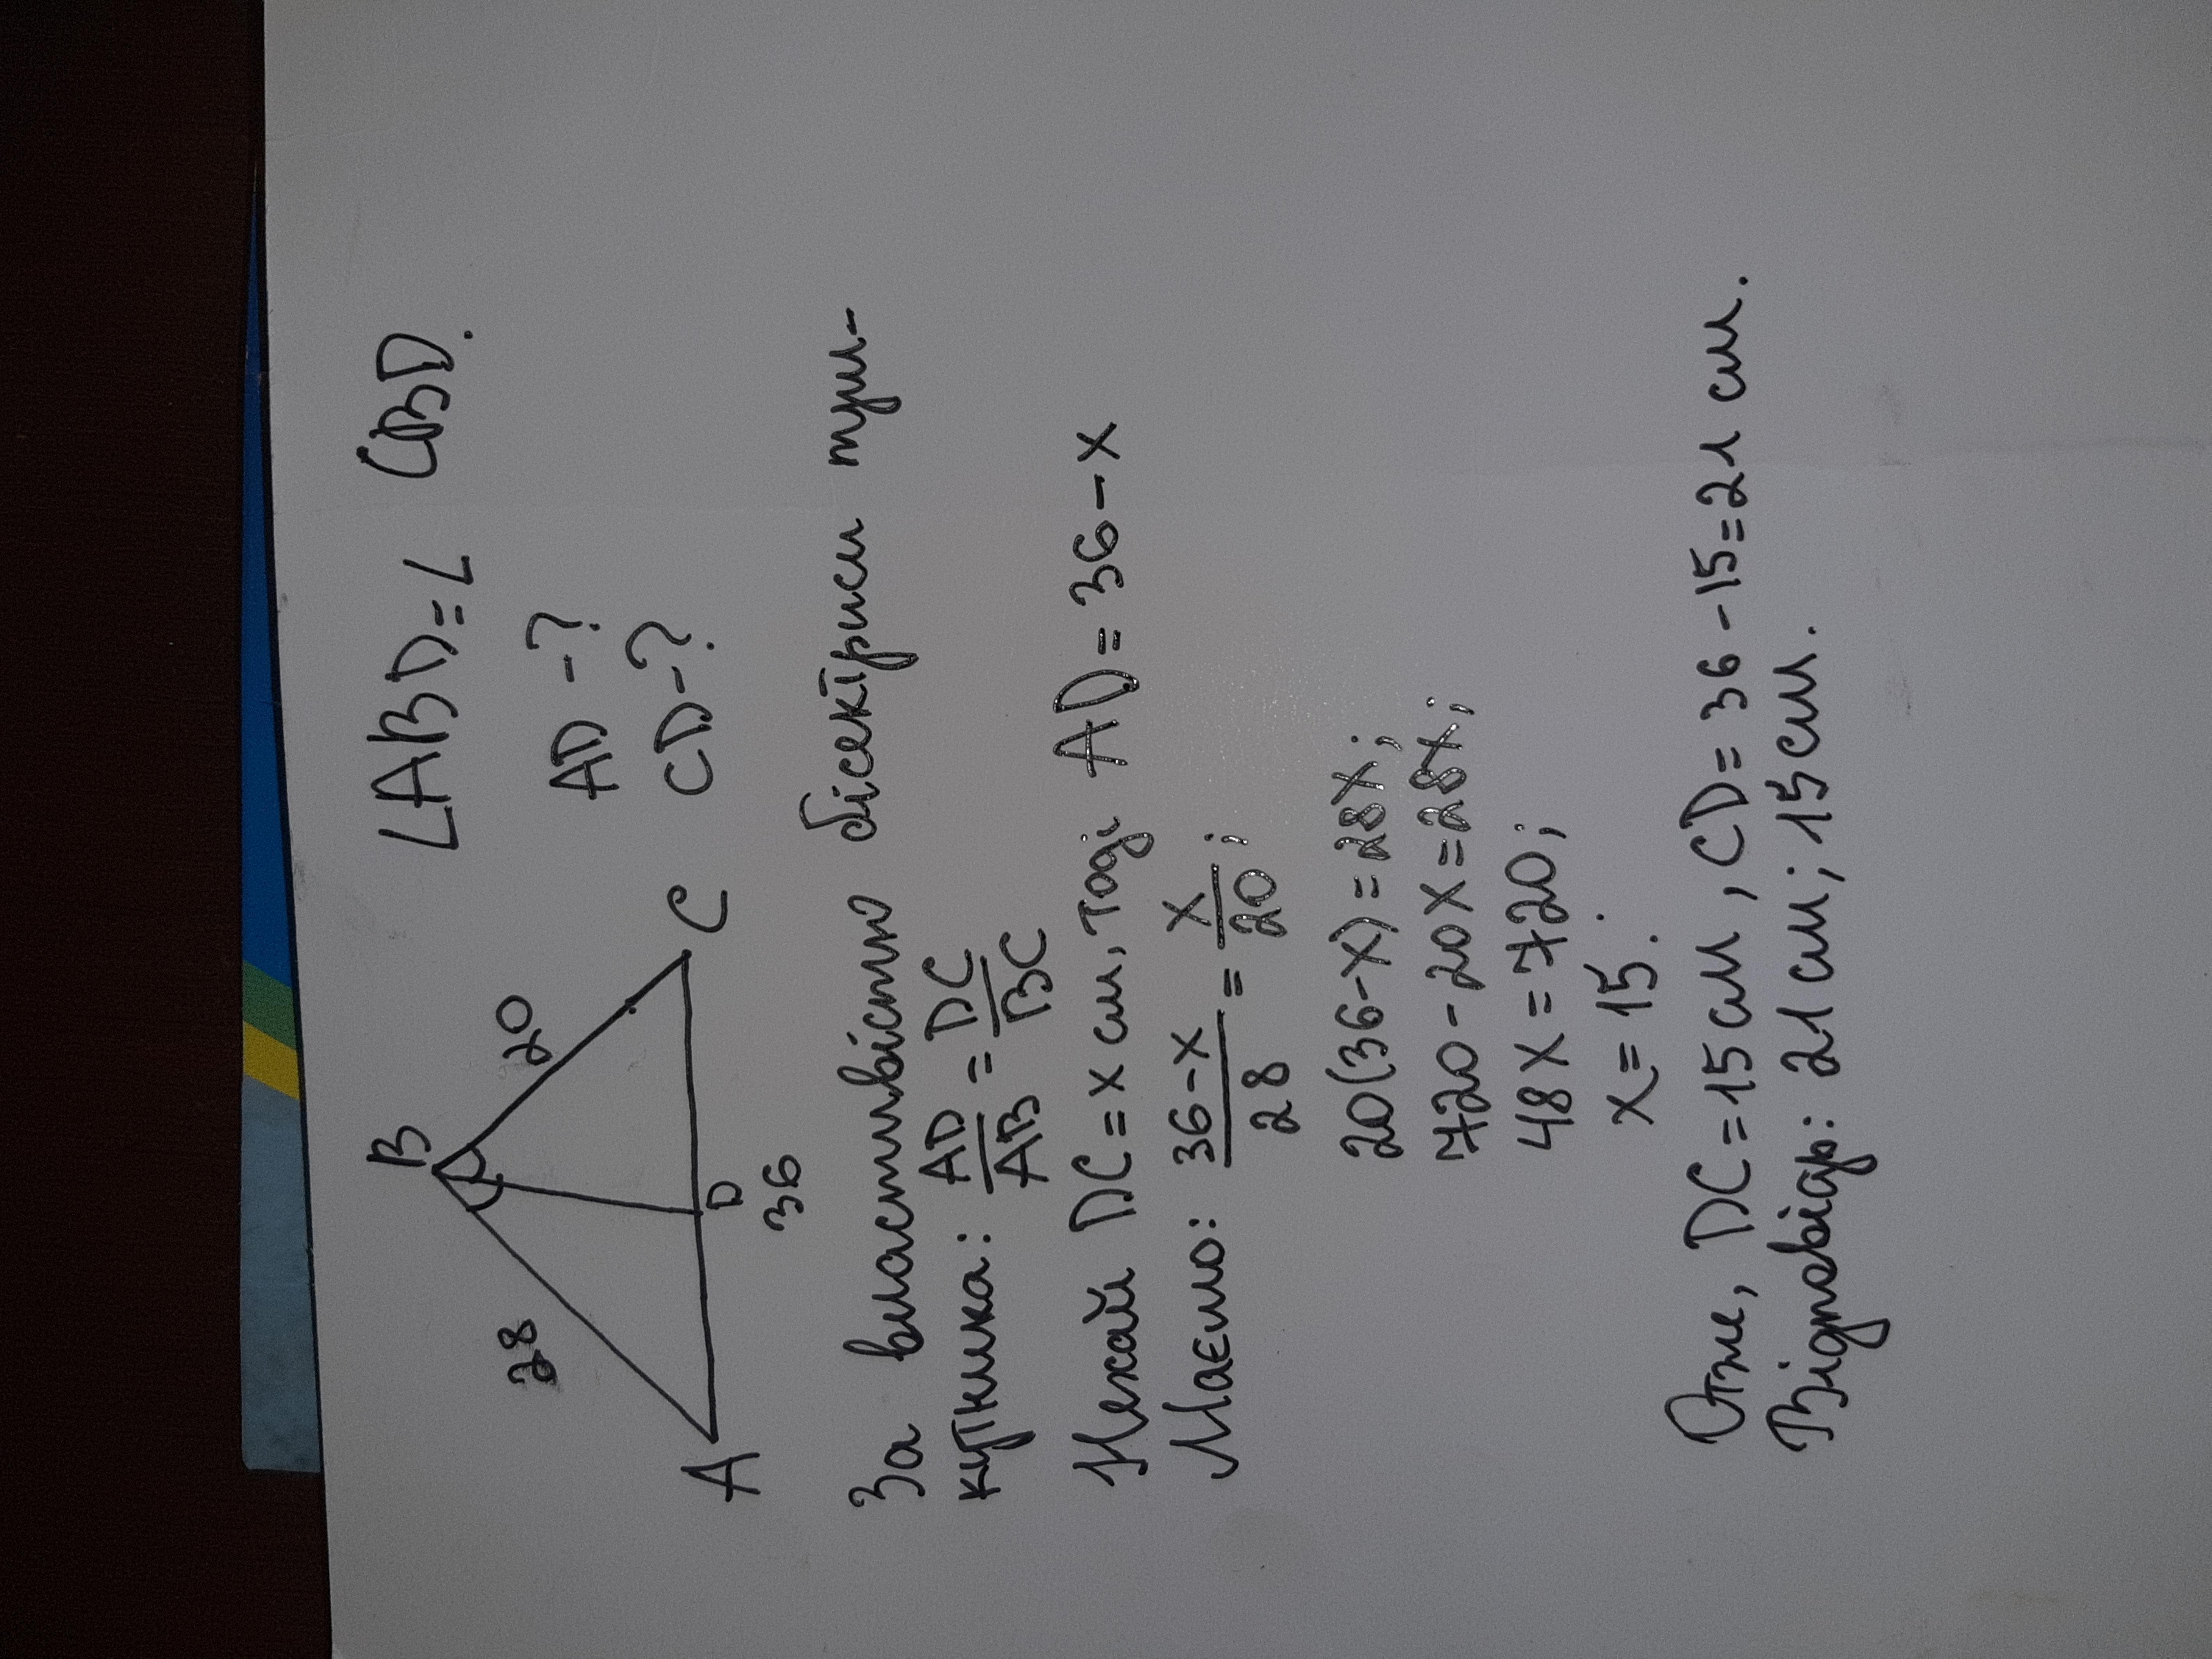 ∠ABD=∠ CBD.
B
28
20
AD-?
CD-?
A
D
C
36
За властивістю бісектриси трикутника:
AD/AB = DC/BC
Нехай DC=x см, тоді AD=36-x
Маємо: (36-x)/28 = x/20;
20(36-x)=28x;
720-20x=28x;
48x=720;
x=15.
Отже, DC=15 см, CD=36-15=21 см.
Відповідь: 21 см; 15 см.